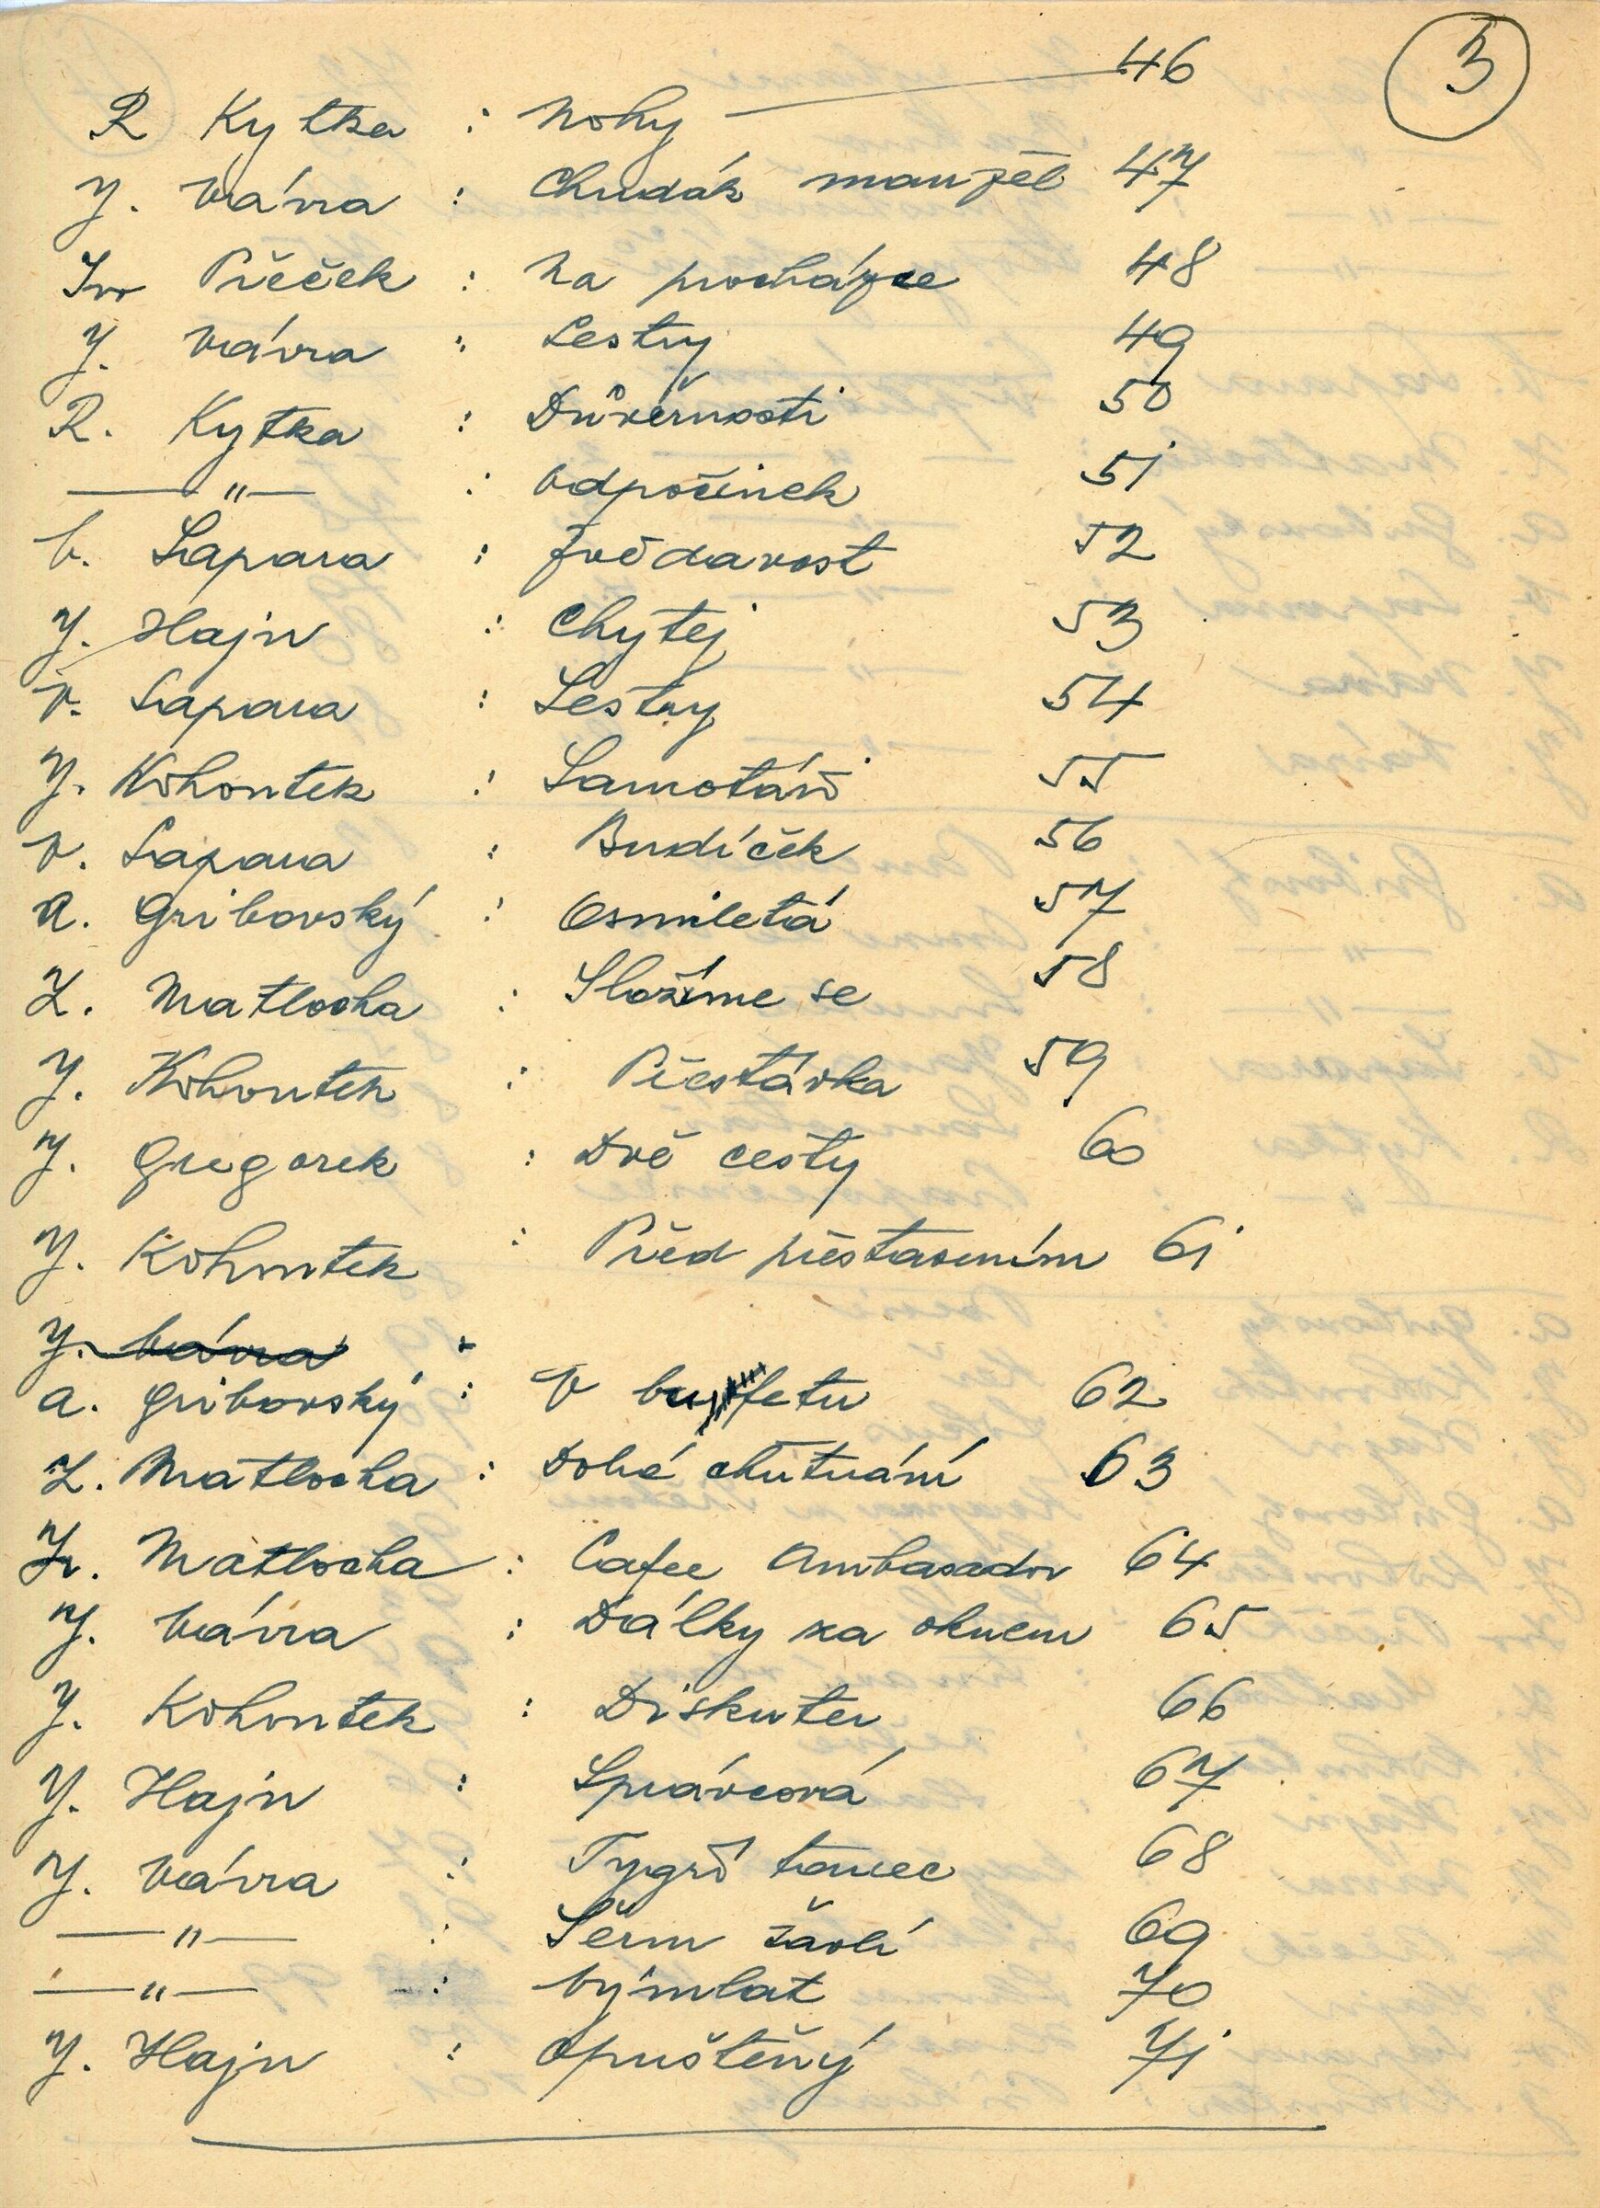 3
R Kytka : Nohy — 46
J. Vávra : Chudák manžel 47
Ivo Přeček : Na procházce 48
J. Vávra : Sestry 49
R. Kytka : Důvěrnosti 50
—"— : Odpočinek 51
V. Lapara : Zvědavost 52
J. Hajn : Chytej 53
V. Lapara : Sestry 54
J. Kohoutek : Samotáři 55
V. Lapara : Budíček 56
A. Gribovský : Osmiletá 57
Z. Matlocha : Složíme se 58
J. Kohoutek : Přestávka 59
J. Gregorek : Dvě cesty 60
J. Kohoutek : Před přestavením 61
J. Vávra :
A. Gribovský : V bufetu 62
Z. Matlocha : Dobré chutnání 63
Matlocha : Cafee Ambasador 64
J. Vávra : Dálky za oknem 65
J. Kohoutek : Diskuter 66
J. Hajn : Správcová 67
J. Vávra : Tygří tanec 68
—"— : Šerm žávlí 69
—"— : Výmlat 70
J. Hajn : Opuštěný 71